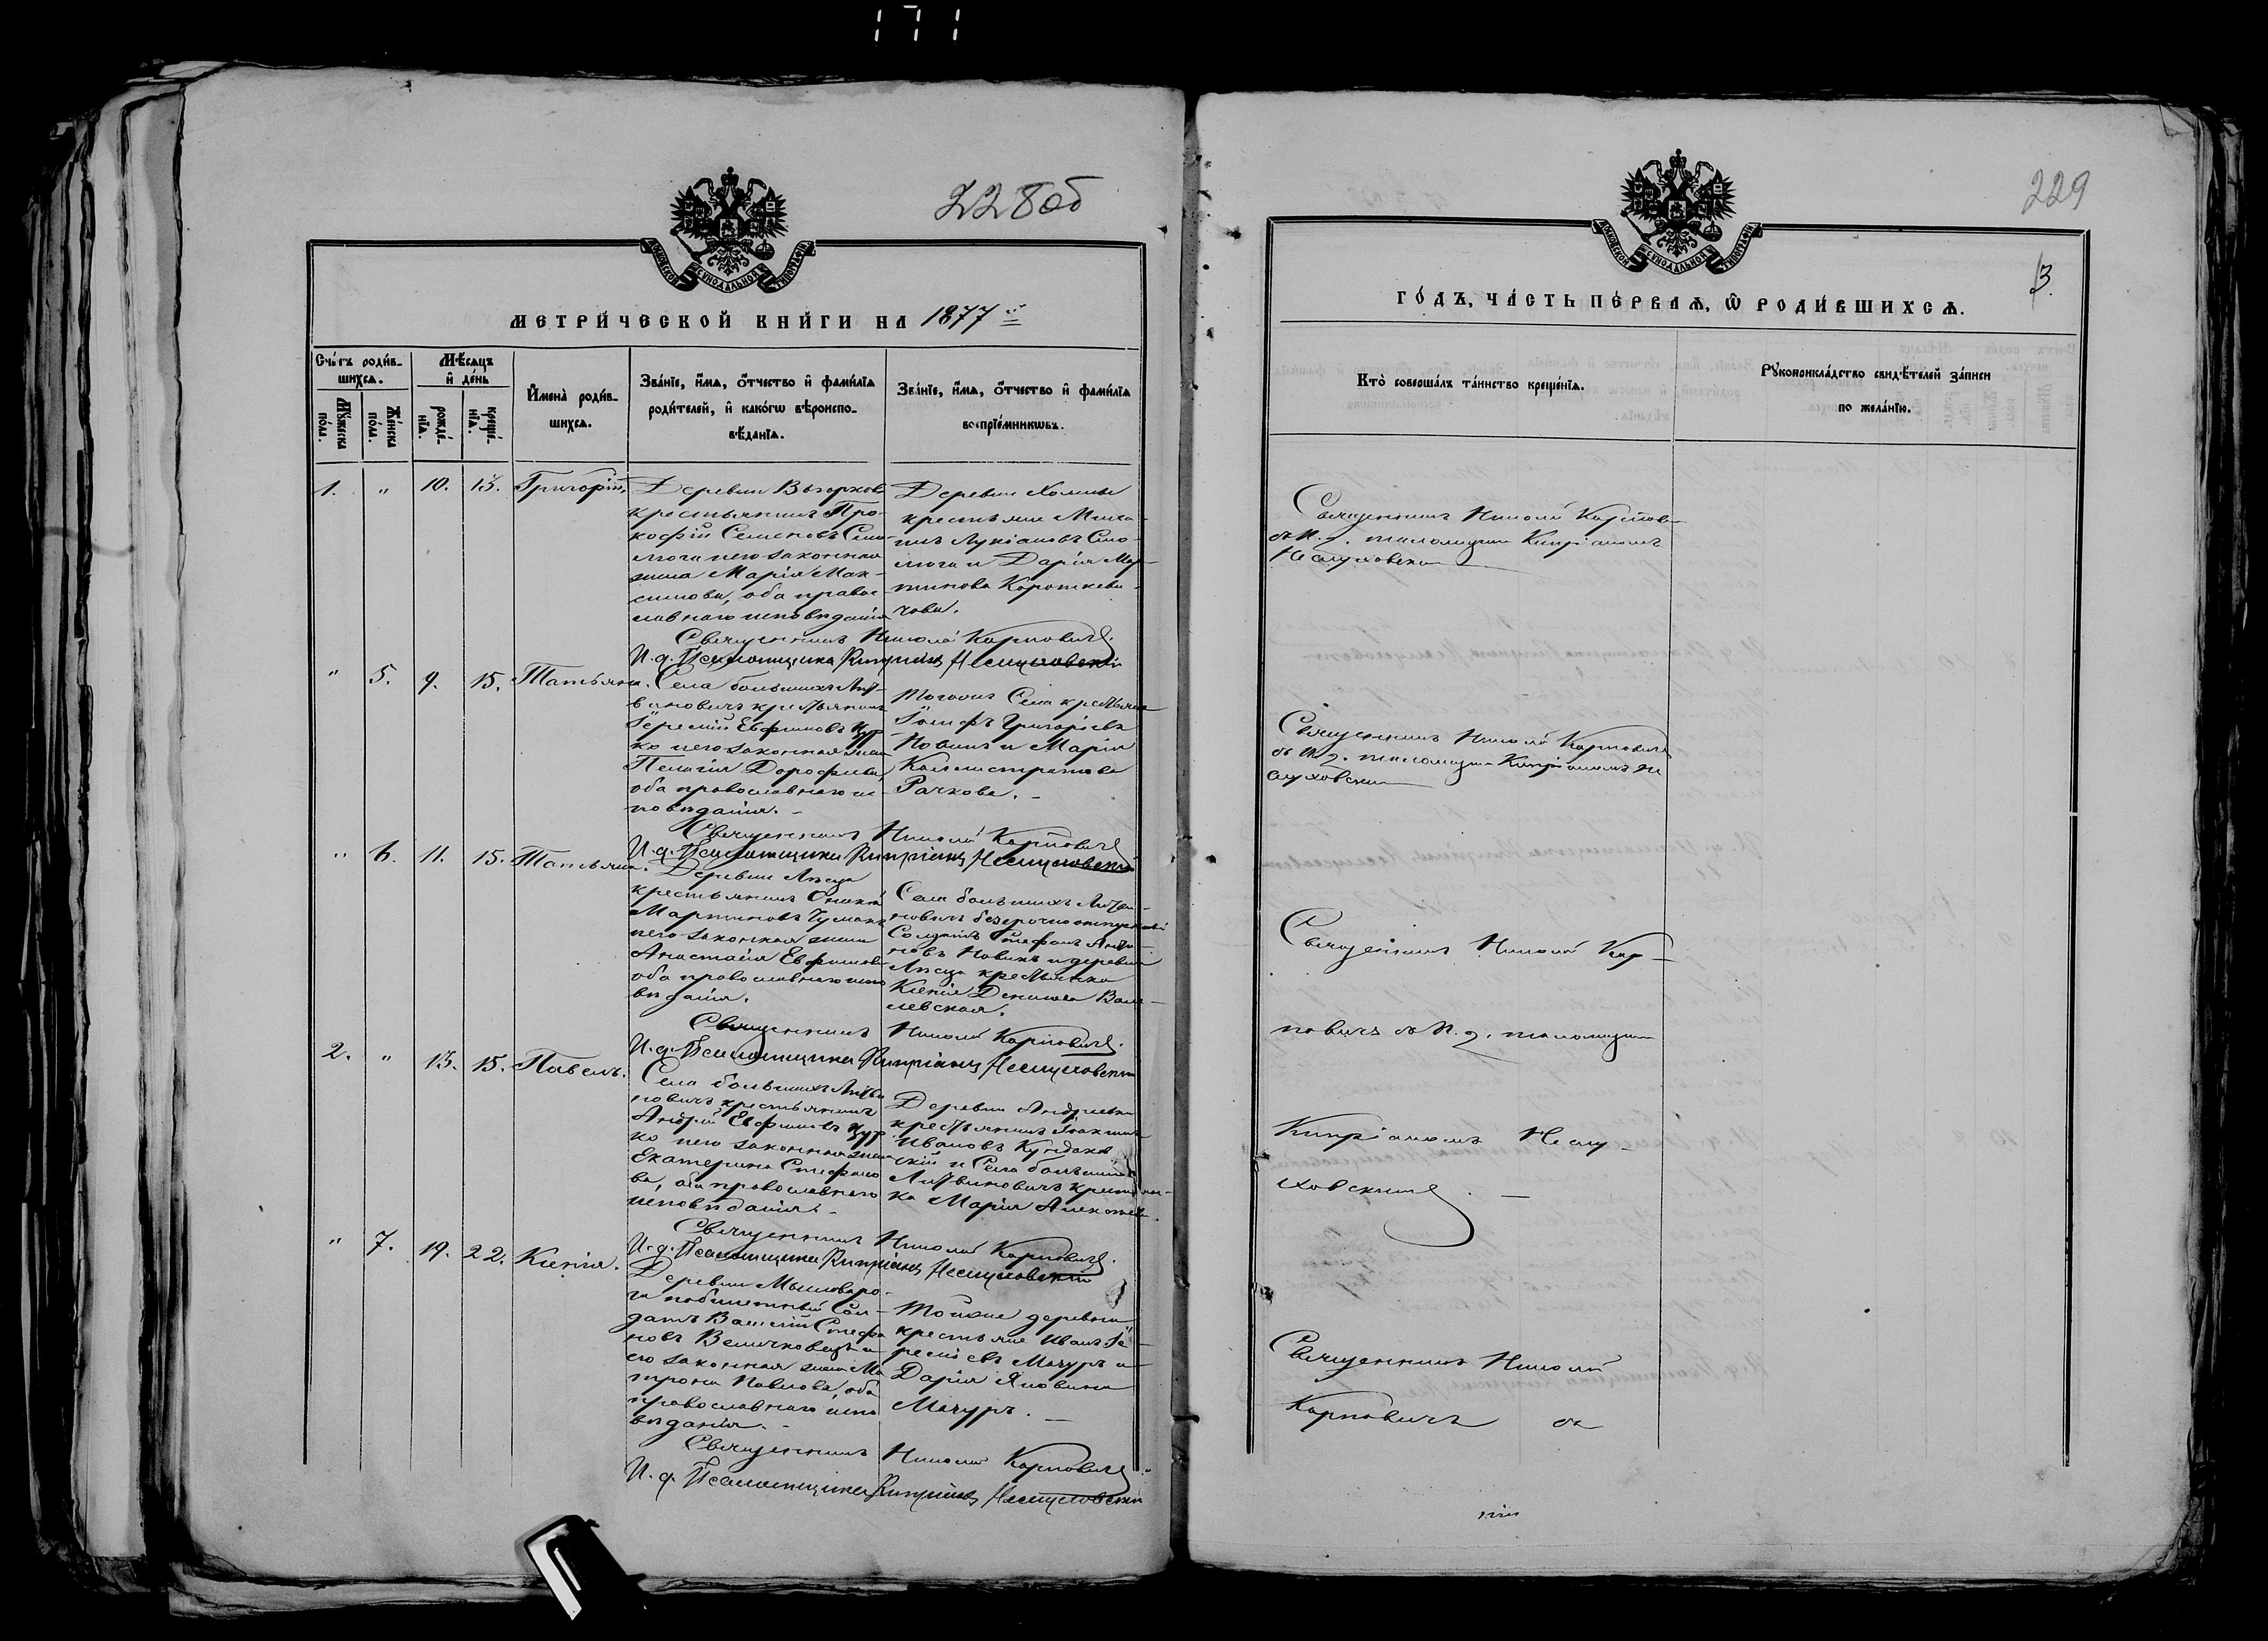 228об
МОСКОВСКОЙ СѴНОДАЛЬНОЙ ТИПОГРАФІИ
МЕТРИ́ЧЕСКОЙ КНИ́ГИ НА 1877й
Сче́тъ роди́в-
шихсѧ.
Мѣ́сѧцъ
и҆ де́нь
Мꙋ́жеска по́ла.
Же́нска по́ла.
рожде́-
нїѧ.
креще́-
нїѧ.
И҆мена̀ роди́в-
шихсѧ.
Зва́нїе, и҆́мѧ, ѻ҆́тчество и҆ фами́лїѧ
роди́телей, и҆ како́гѡ вѣроиспо-
вѣ́данїѧ.
Зва́нїе, и҆́мѧ, ѻ҆́тчество и҆ фами́лїѧ
воспрїе́мникѡвъ.
1. " 10. 13. Григорій.
Деревни
крестьянинъ Про-
кофій Семеновъ
и его законная
жена Марія Мак-
симова, оба правос-
лавнаго исповѣданія
Деревни
крестьяне
Лукіановъ
и Дарія Мар-
тинова Короткеви-
чова.
Священникъ Николай Карповичъ.
И. д. Псаломщика Кипріанъ Неслуховскій
" 5. 9. 15. Татьяна.
Села большихъ Лит-
виновичъ крестьянинъ
Іеремій Евфимовъ Цур
ко и его законная жена
Пелагія Дорофеева,
оба православнаго ис-
повѣданія. -
Тогожъ Села крестьяне
Іосифъ Григоріевъ
Новикъ и Марія
Каллистратова
Рачкова. -
Священникъ Николай Карповичъ
И. д. Псаломщика Кипріанъ Неслуховскій
" 6. 11. 15. Татьяна.
Деревни
крестьянинъ
Мартиновъ
и его законная жена
Анастасія Евфимова
оба православнаго испо
вѣданія.
Села большихъ Литви-
новичъ безсрочноотпускный
Солдатъ Стефанъ
новъ Новикъ и деревни
крестьянка
Ксенія Денисова
левская.
Священникъ Николай Карповичъ.
И. д. Псаломщика Кипріанъ Неслуховскій
2. " 13. 15. Павелъ.
Села большихъ Литви
новичъ крестьянинъ
Андрей Евфимовъ Цур
ко и его законная жена
Екатерина Стефано
ва, оба православнаго
исповѣданія. -
Деревни Андреевки
крестьянинъ
Ивановъ
скій и Села большихъ
Литвиновичъ крестьян-
ка Марія
Священникъ Николай Карповичъ.
И. д. Псаломщика Кипріанъ Неслуховскій
" 7. 19. 22. Ксенія.
Деревни
Сол-
датъ Василій Стефа
новъ Величковецъ и
его законная жена Ма
трона Павлова, оба
православнаго испо
вѣданія. -
Тойже деревни
крестьяне Иванъ Іе-
реміевъ Мачуръ и
Дарія
Мачуръ. -
Священникъ Николай Карповичъ.
И. д. Псаломщика Кипріанъ Неслуховскій
229
3.
МОСКОВСКОЙ СѴНОДАЛЬНОЙ ТИПОГРАФІИ
ГО́ДЪ, ЧА́СТЬ ПЕ́РВАѦ, Ѽ РОДИ́ВШИХСѦ.
Кто̀ соверша́лъ та́инство креще́нїѧ.
Рꙋкоприкла́дство свидѣ́телей за́писи
по жела́нїю.
Священникъ Николай Карпович
съ И. д. псаломщика Кипріаномъ
Неслуховскимъ
Священникъ Николай Карповичъ
съ И. д. псаломщика Кипріаномъ Не
слуховскимъ
Священникъ Николай Кар-
повичъ съ И. д. псаломщика
Кипріаномъ Неслу-
ховскимъ. -
Священникъ Николай
Карповичъ съ